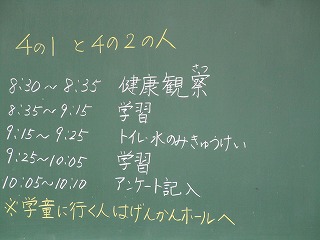 4の1と4の2の人
8:30～8:35 健康観察さつ
8:35～9:15 学習
9:15～9:25 トイレ・水のみきゅうけい
9:25～10:05 学習
10:05～10:10 アンケート記入
※学童に行く人はげんかんホールへ